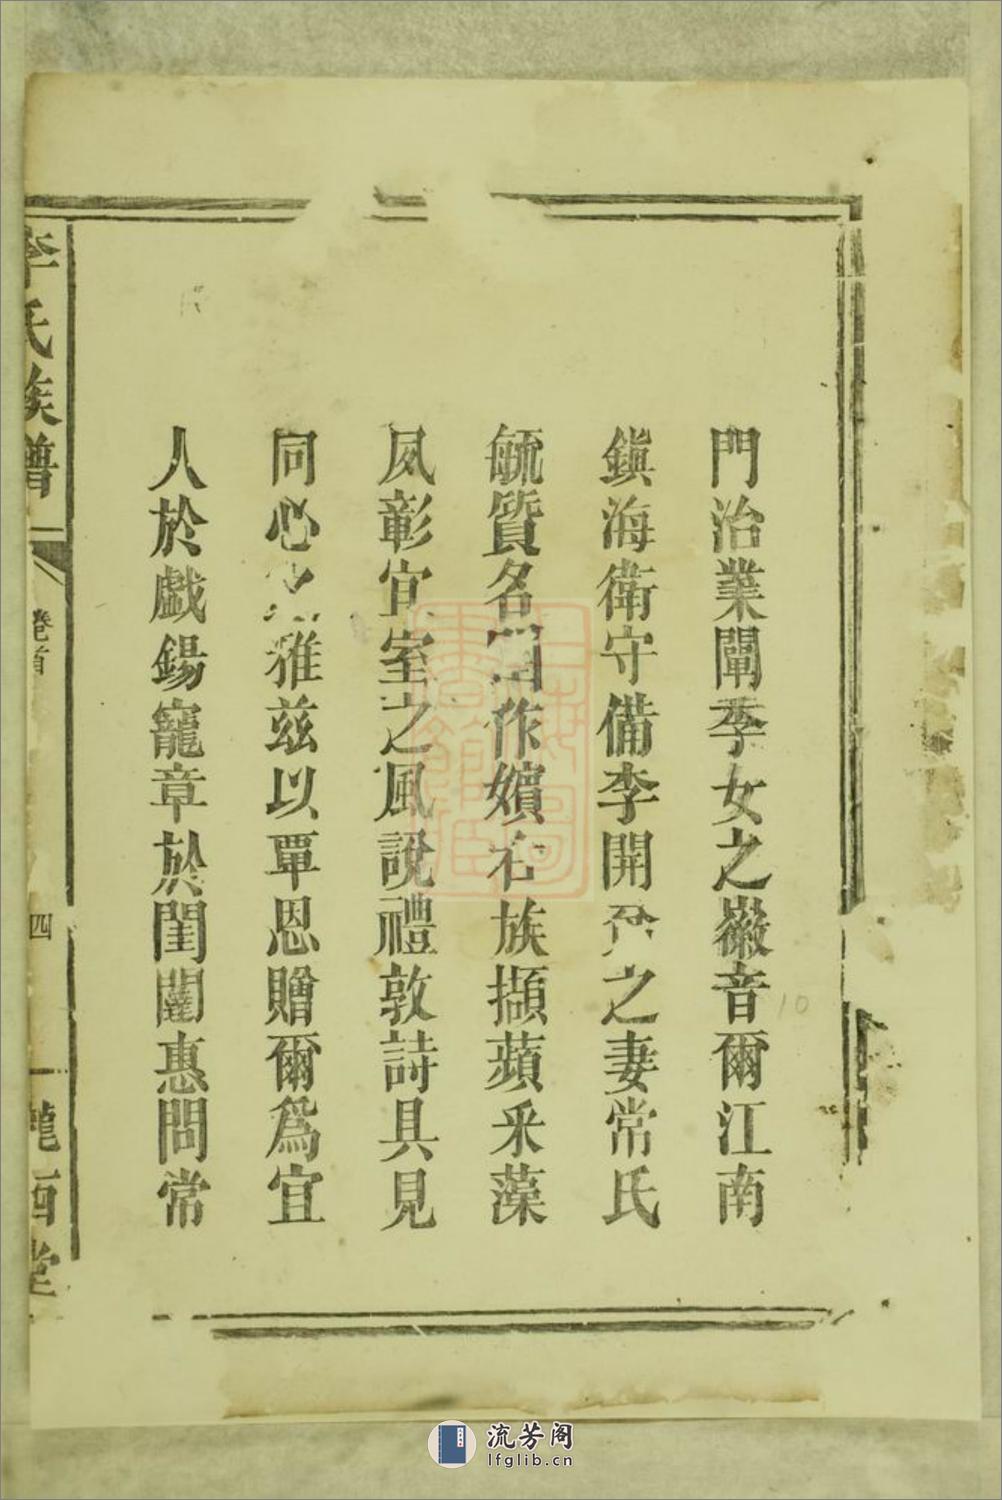 門治業闡季女之徽音爾江南
鎭海衛守備李開之妻常氏
毓質名作嬪右族擷蘋采藻
夙彰宜室之風說禮敦詩具見
同心雅兹以覃恩贈爾爲宜
人於戲錫寵章於閨闥惠問常
李氏族譜
卷首
四
隴西堂
流芳阁
lfglib.cn